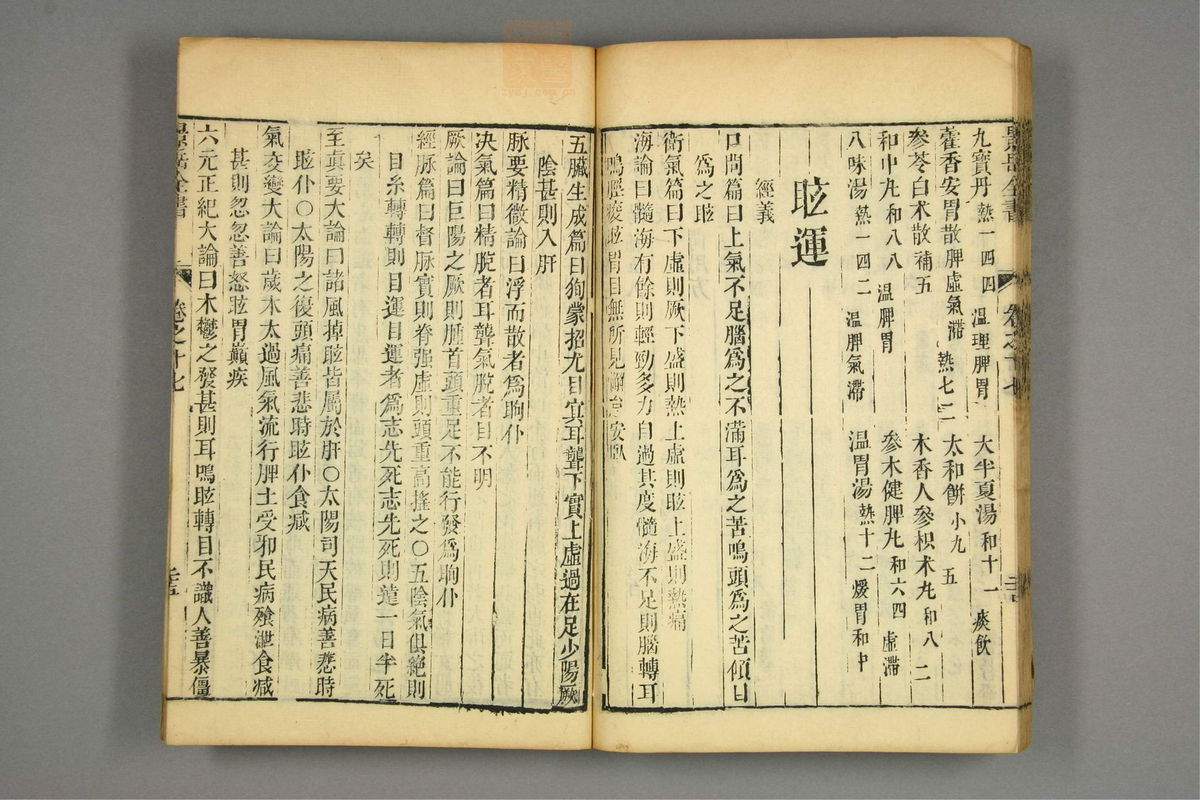 九寶丹 熱一四四 温理脾胃 大半夏湯 和十一 痰飲
藿香安胃散 脾虛氣滯 熱七二 太和餅 小九五
參苓白朮散 補五 木香人參枳朮丸 和八二
和中丸 和八八 温脾胃 參朮健脾丸 和六四 虛滯
八味湯 熱一四二 温脾氣滯 温胃湯 熱十二 煖胃和中
眩運
經義
口問篇曰上氣不足腦爲之不滿耳爲之苦鳴頭爲之苦傾目
爲之眩
衛氣篇曰下虛則厥下盛則熱上虛則眩上盛則熱痛
海論曰髓海有餘則輕勁多力自過其度髓海不足則腦轉耳
鳴脛痠眩冒目無所見懈怠安臥
景岳全書 卷之十七
五臟生成篇曰狗蒙招尤目冥耳聾下實上虛過在足少陽厥
陰甚則入肝
脉要精微論曰浮而散者爲眴仆
決氣篇曰精脫者耳聾氣脫者目不明
厥論曰巨陽之厥則腫首頭重足不能行發爲眴仆
經脉篇曰督脉實則脊强虛則頭重高搖之○五陰氣俱絶則
目系轉轉則目運目運者爲志先死志先死則遠一日半死
矣
至真要大論曰諸風掉眩皆屬於肝○太陽司天民病善悲時
眩仆○太陽之復頭痛善悲時眩仆食減
氣交變大論曰歲木太過風氣流行脾土受邪民病飱泄食減
甚則忽忽善怒眩冒巔疾
六元正紀大論曰木鬱之發甚則耳鳴眩轉目不識人善暴僵
景岳全書 卷之十七